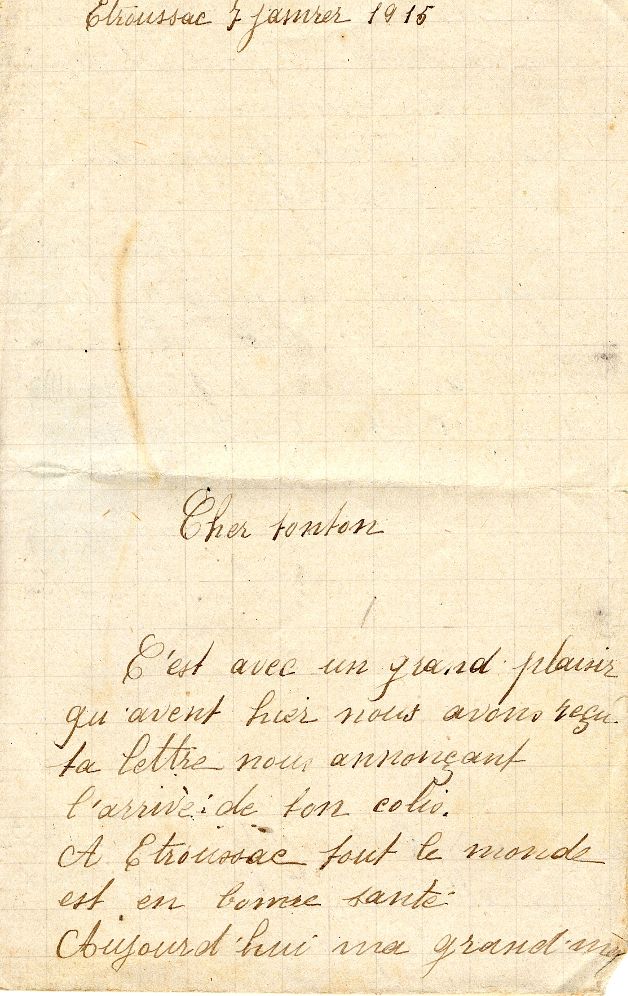 Etroussac 7 janvier 1915
Cher tonton
C'est avec un grand plaisir
qu'avent hier nous avons reçu
ta lettre nous annonçant
l'arrivé de ton colis.
A Etroussac tout le monde
est en bonne santé
Aujourd'hui ma grand-mèr